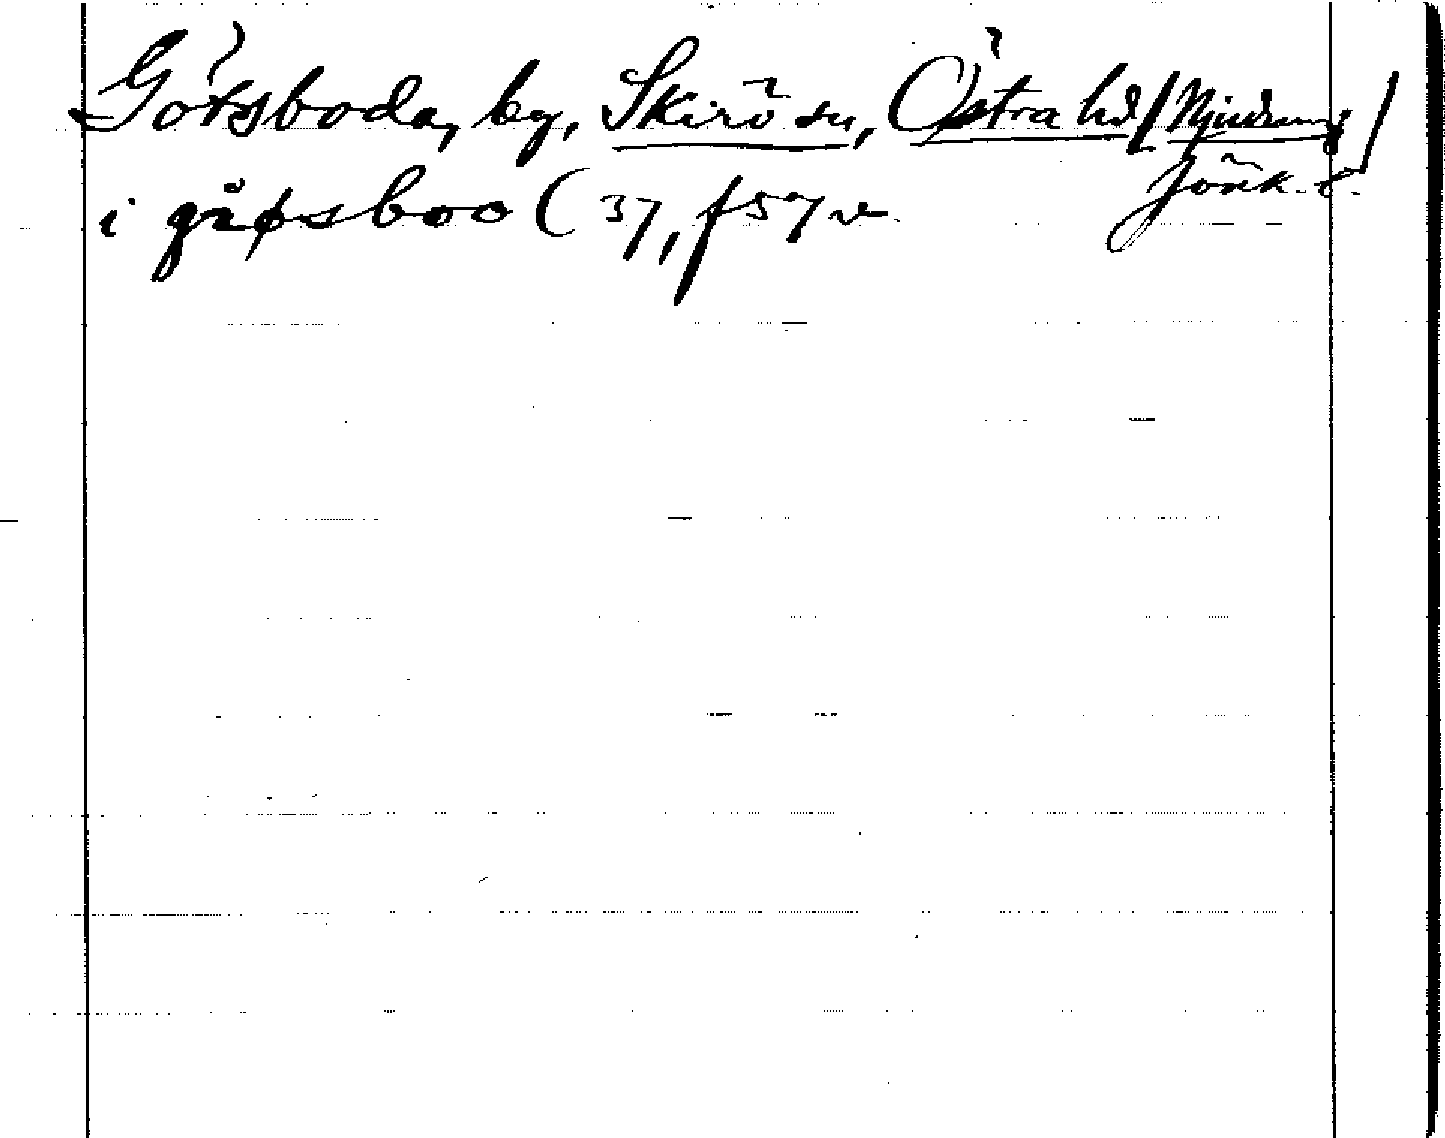 Görsboda, by, Skirö sn, Östra hd / Njudung /
Jönk. l.
i gøøsboo ( 37, f 57 v